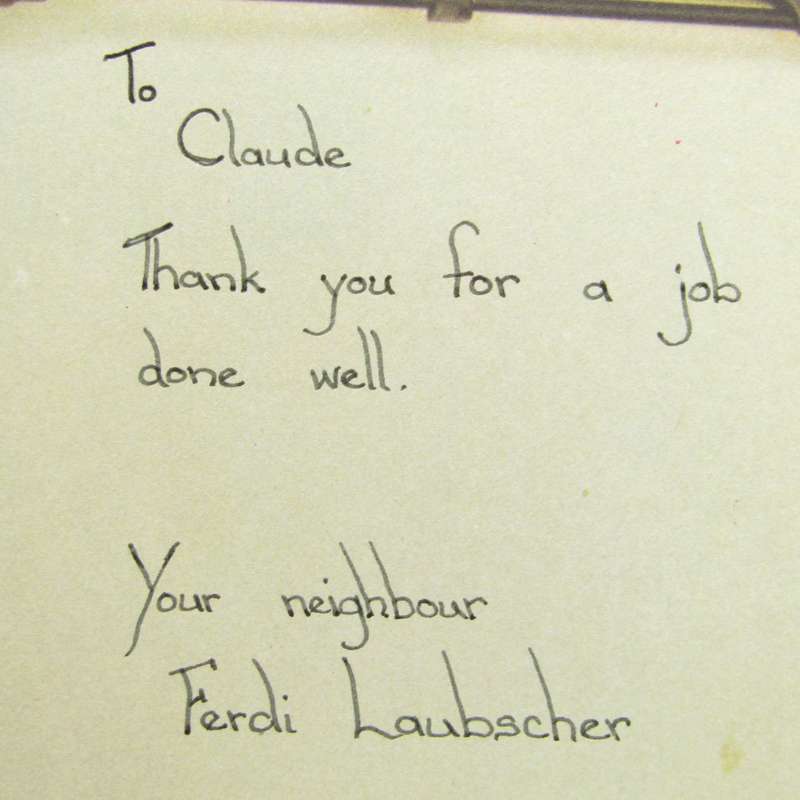 To
Claude
Thank you for a job
done well.
Your neighbour
Ferdi Laubscher